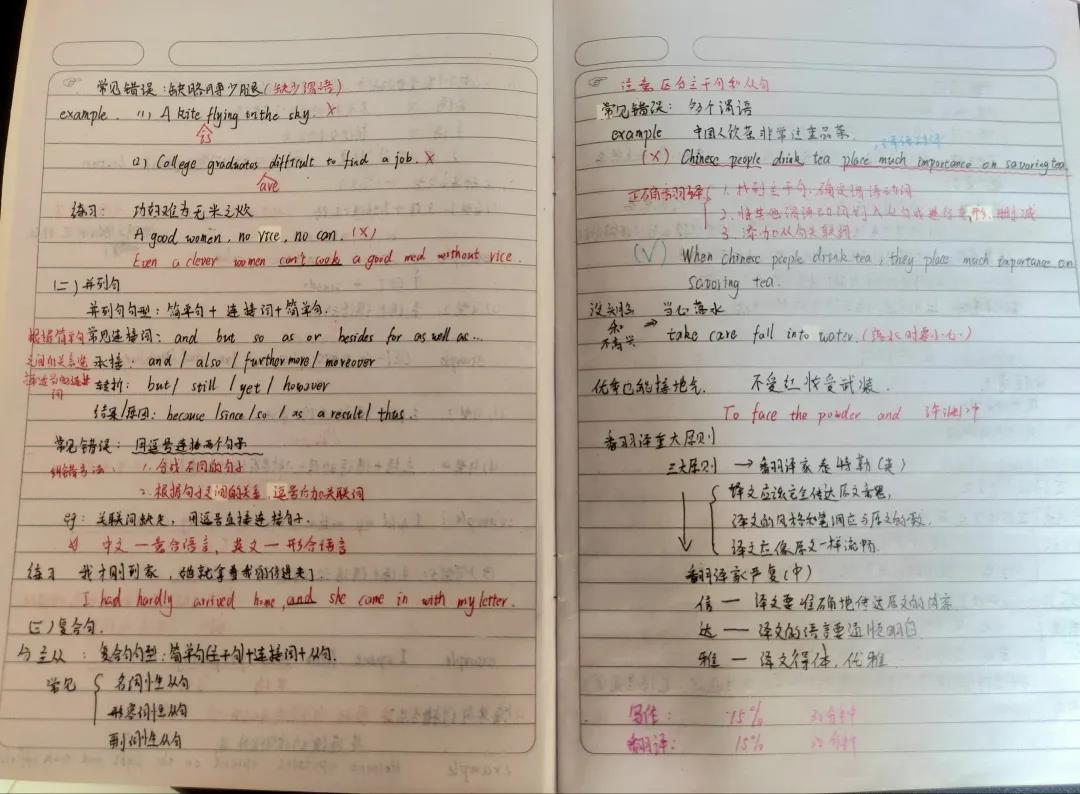 常见错误：缺胳膊少腿（缺少谓语）
example. (1) A kite flying in the sky. ×
is
(2) College graduates difficult to find a job. ×
are
练习： 巧妇难为无米之炊
A good women, no rice, no can. (×)
Even a clever women can't cook a good meal without rice.
(二)并列句
并列句句型：简单句+连接词+简单句.
根据简单句
之间的关系选
择适当的连接
词
常见连接词： and but so as or besides for as well as...
承接： and / also / furthermore / moreover
转折： but / still / yet / however
结果/原因： because /since /so / as a result / thus.
常见错误： 用逗号连接两个句子
纠错方法： 1. 分成不同的句子
2. 根据句子之间的关系，逗号后加关联词
eg： 关联词缺失，用逗号直接连接句子.
中文一意合语言，英文一形合语言
练习 我才刚到家，她就拿着我的信进来了.
I had hardly arrived home, and she came in with my letter.
(三)复合句.
主从： 复合句句型：简单句(主干句)+连接词+从句.
常见 名词性从句
形容词性从句
副词性从句
注意区分主干句和从句
常见错误： 多个谓语
example 中国人饮茶非常注重品茶.
(×) Chinese people drink tea place much importance on savoring tea.
正确翻译 1. 找到主干句，确定谓语动词
2. 将其他谓语动词划入从句或进行变形、删减
3. 添加从句关联词
(√) When chinese people drink tea, they place much importance on
savoring tea.
当心落水
take care fall into water.
不爱红妆爱武装.
To face the powder and
翻译重大原则
三大原则 → 翻译家泰特勒(英)
译文应该完全传达原文意思，
译文的风格和笔调应与原文一致.
译文应像原文一样流畅.
翻译家严复(中)
信 — 译文要准确地传达原文的内容
达 — 译文的语言要通顺明白.
雅 — 译文得体、优雅.
写作： 15% 30分钟
翻译： 15% 30分钟